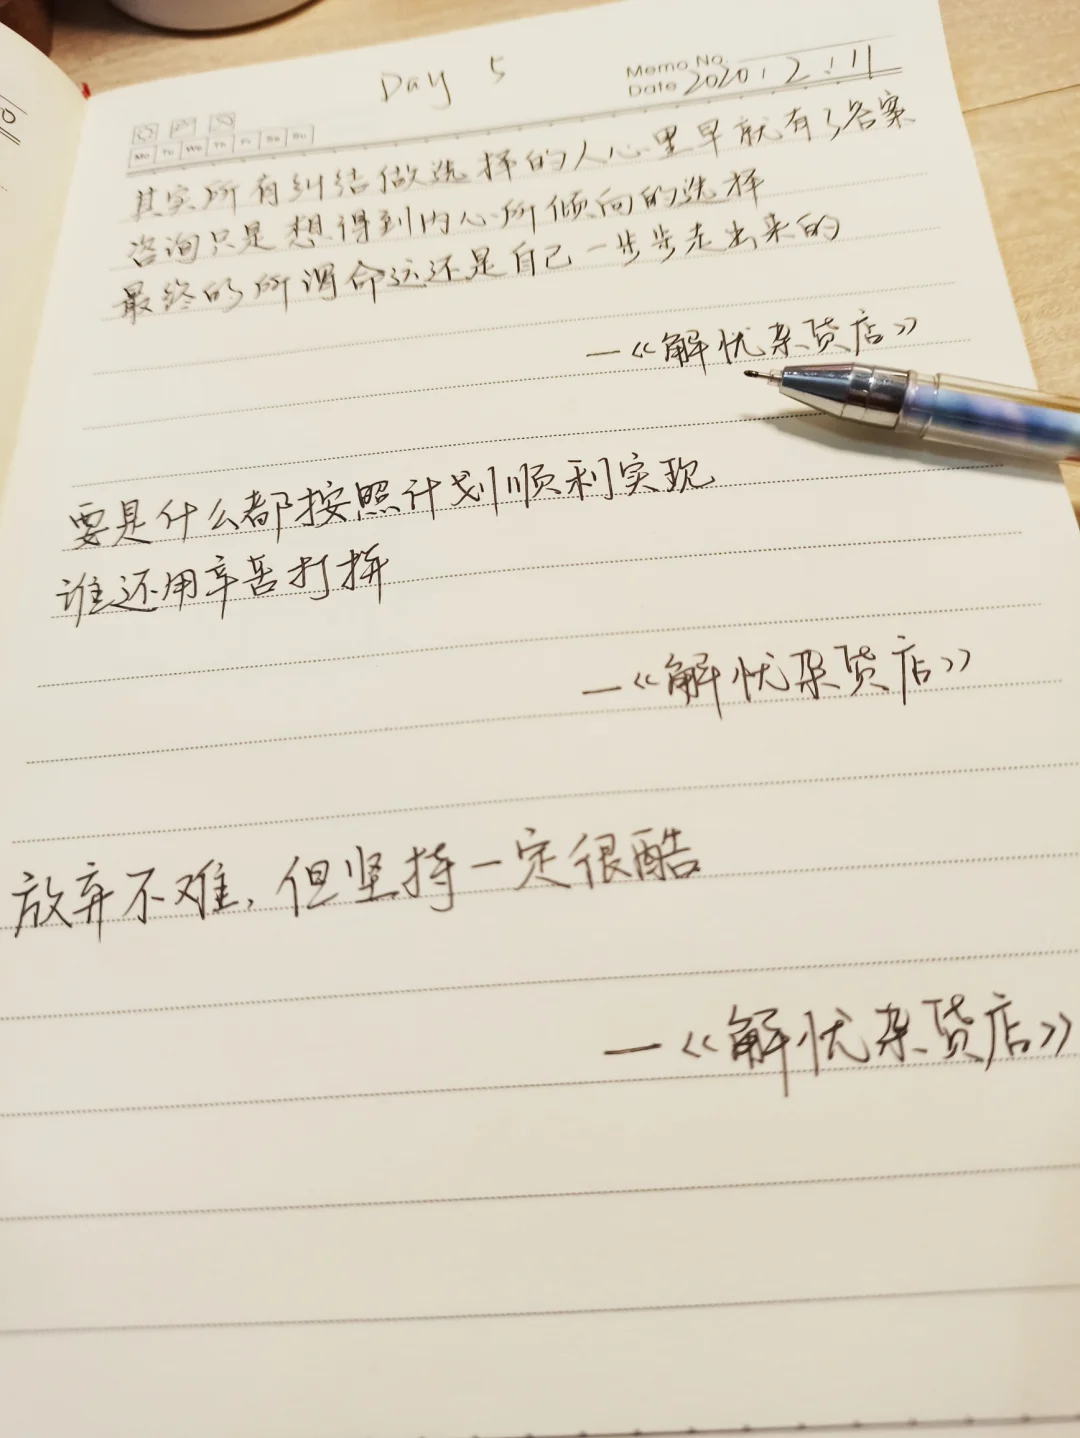 Day 5
Memo No.
Date 2020.2.11
Mo Tu We Th Fr Sa Su
其实所有纠结做选择的人心里早就有了答案
咨询只是想得到内心所倾向的选择
最终的所谓命运还是自己一步步走出来的
—《解忧杂货店》
要是什么都按照计划顺利实现
谁还用辛苦打拼
—《解忧杂货店》
放弃不难,但坚持一定很酷
—《解忧杂货店》